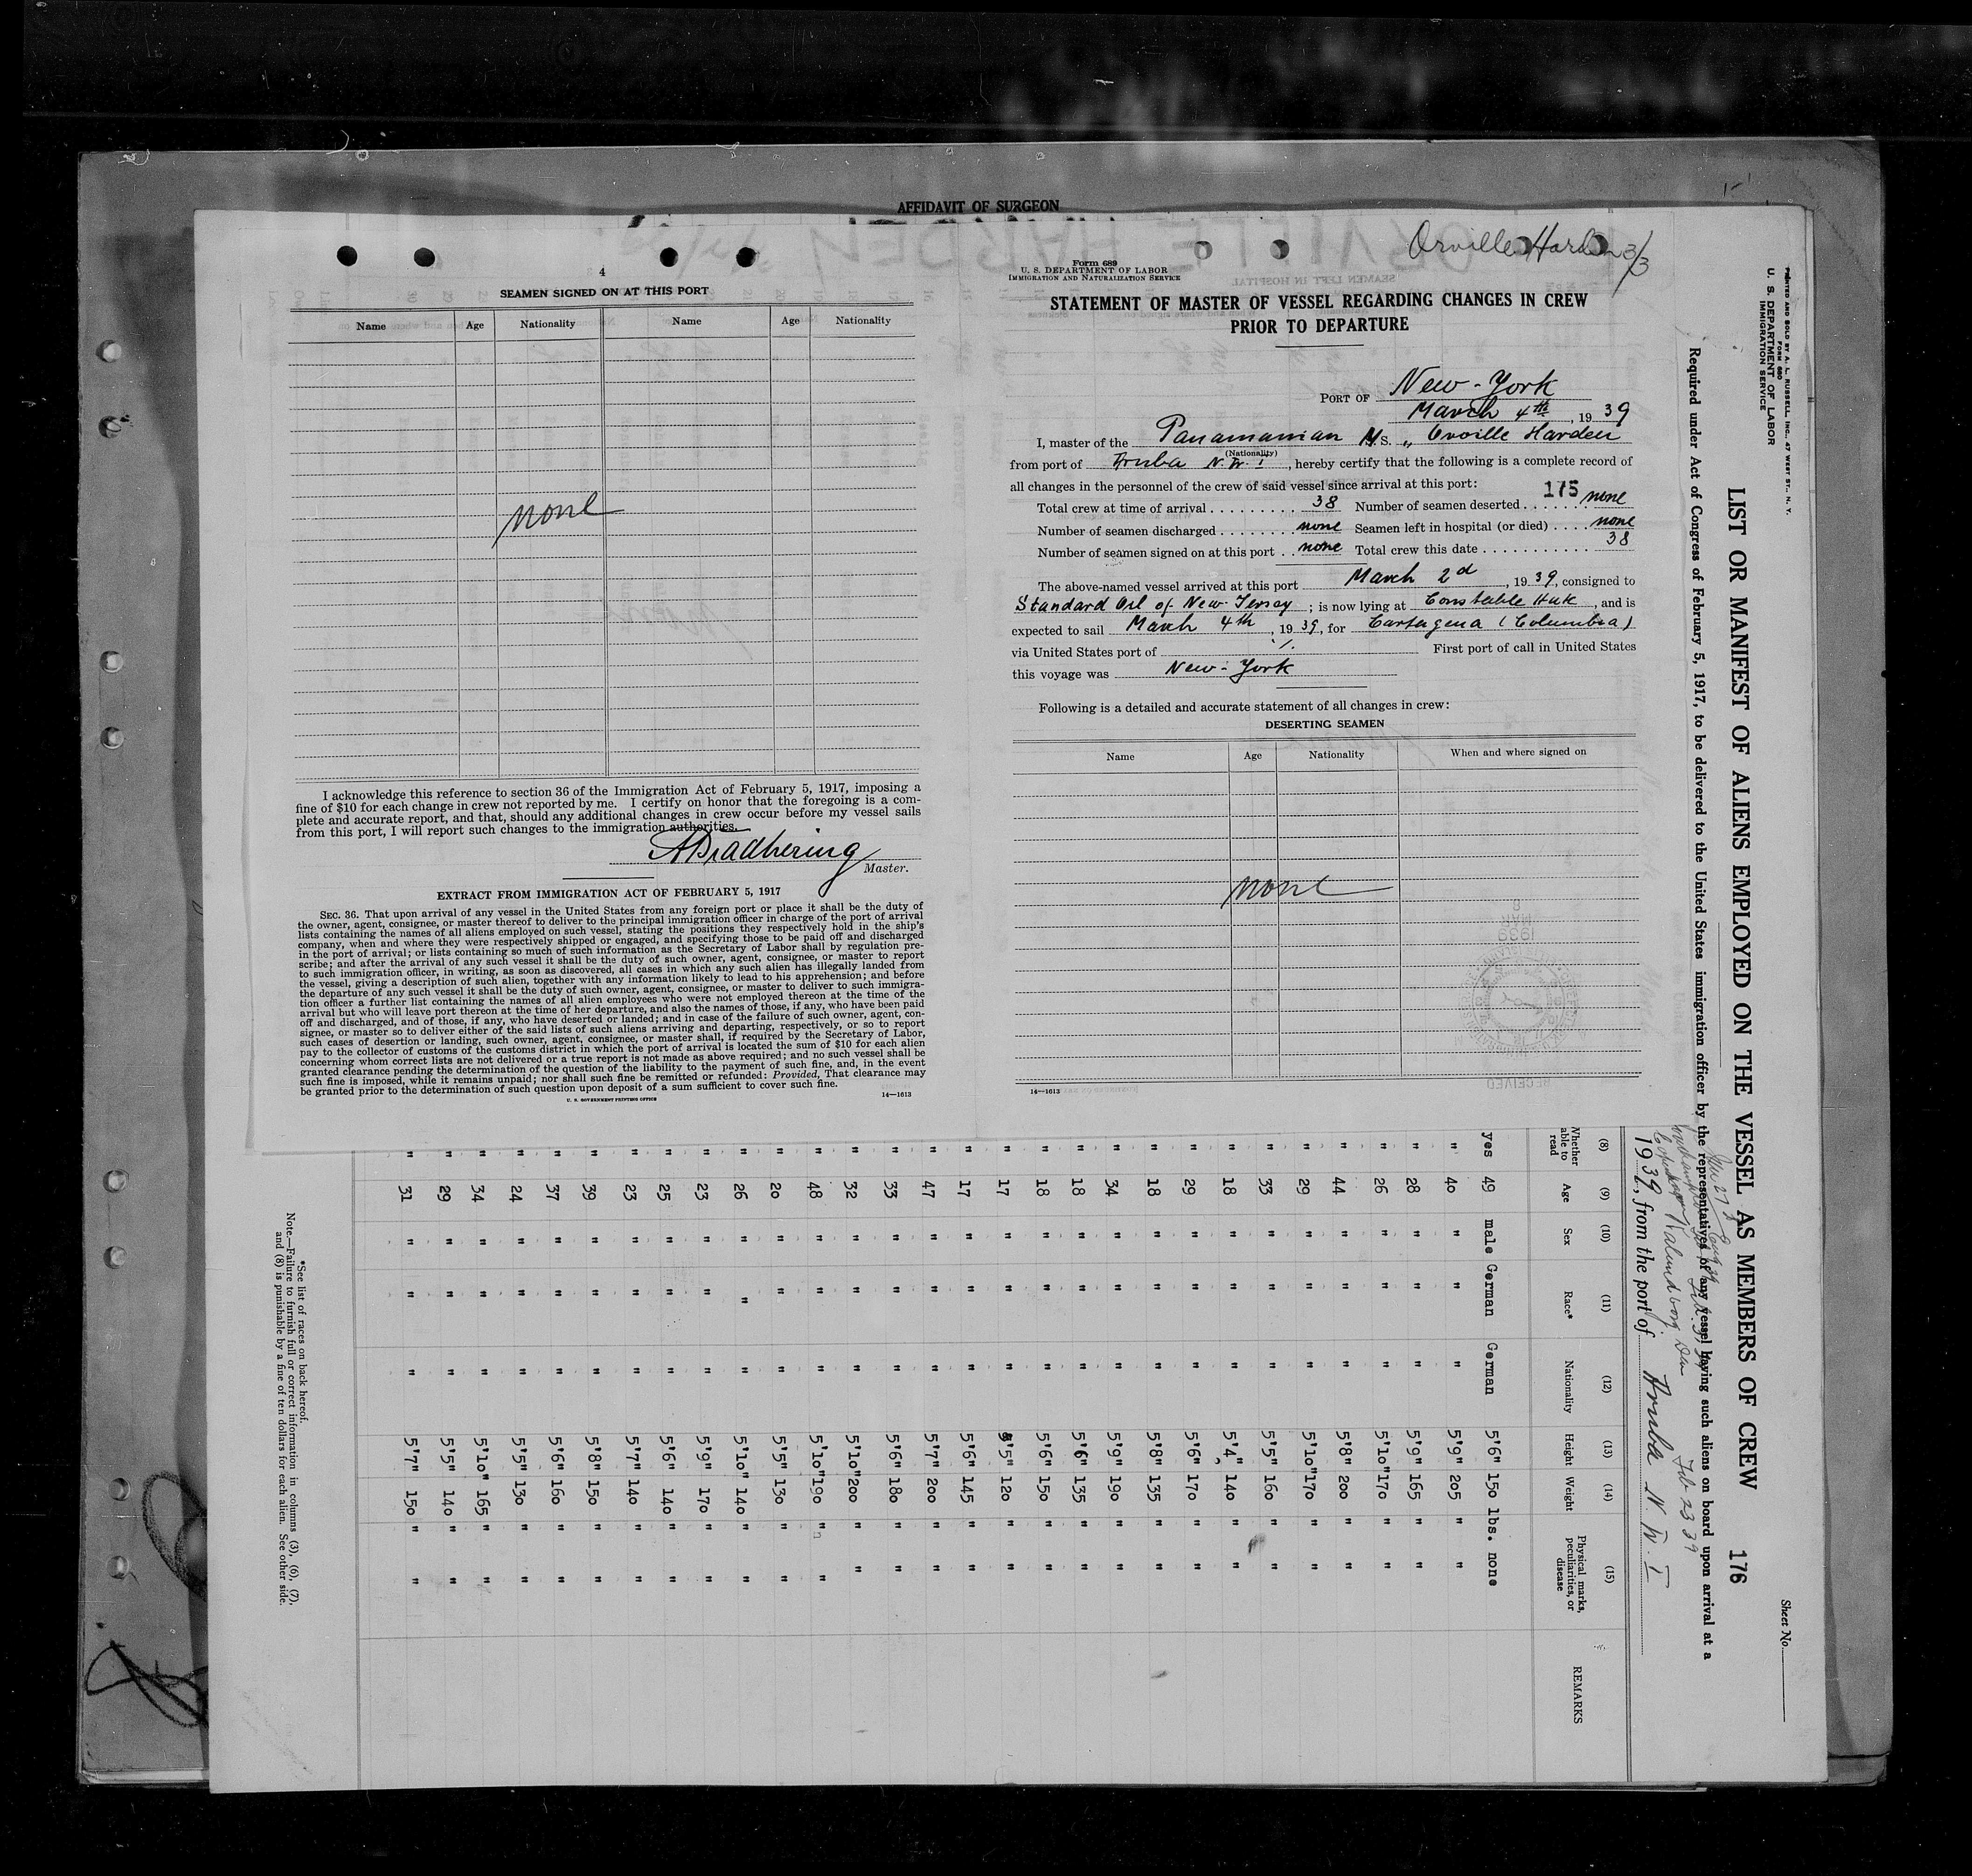 AFFIDAVIT OF SURGEON
4
SEAMEN SIGNED ON AT THIS PORT
Name Age Nationality Name Age Nationality
none
I acknowledge this reference to section 36 of the Immigration Act of February 5, 1917, imposing a
fine of $10 for each change in crew not reported by me. I certify on honor that the foregoing is a com-
plete and accurate report, and that, should any additional changes in crew occur before my vessel sails
from this port, I will report such changes to the immigration authorities.
Master.
EXTRACT FROM IMMIGRATION ACT OF FEBRUARY 5, 1917
SEC. 36. That upon arrival of any vessel in the United States from any foreign port or place it shall be the duty of
the owner, agent, consignee, or master thereof to deliver to the principal immigration officer in charge of the port of arrival
lists containing the names of all aliens employed on such vessel, stating the positions they respectively hold in the ship's
company, when and where they were respectively shipped or engaged, and specifying those to be paid off and discharged
in the port of arrival; or lists containing so much of such information as the Secretary of Labor shall by regulation pre-
scribe; and after the arrival of any such vessel it shall be the duty of such owner, agent, consignee, or master to report
to such immigration officer, in writing, as soon as discovered, all cases in which any such alien has illegally landed from
the vessel, giving a description of such alien, together with any information likely to lead to his apprehension; and before
the departure of any such vessel it shall be the duty of such owner, agent, consignee, or master to deliver to such immigra-
tion officer a further list containing the names of all alien employees who were not employed thereon at the time of the
arrival but who will leave port thereon at the time of her departure, and also the names of those, if any, who have been paid
off and discharged, and of those, if any, who have deserted or landed; and in case of the failure of such owner, agent, con-
signee, or master so to deliver either of the said lists of such aliens arriving and departing, respectively, or so to report
such cases of desertion or landing, such owner, agent, consignee, or master shall, if required by the Secretary of Labor,
pay to the collector of customs of the customs district in which the port of arrival is located the sum of $10 for each alien
concerning whom correct lists are not delivered or a true report is not made as above required; and no such vessel shall be
granted clearance pending the determination of the question of the liability to the payment of such fine, and, in the event
such fine is imposed, while it remains unpaid; nor shall such fine be remitted or refunded: Provided, That clearance may
be granted prior to the determination of such question upon deposit of a sum sufficient to cover such fine.
U. S. GOVERNMENT PRINTING OFFICE 14—1613
Orville Harden 3/3
Form 689
U. S. DEPARTMENT OF LABOR
IMMIGRATION AND NATURALIZATION SERVICE
STATEMENT OF MASTER OF VESSEL REGARDING CHANGES IN CREW
PRIOR TO DEPARTURE
PORT OF New-York
March 4th, 1939
I, master of the Panamanian M.S. „ Orville Harden
(Nationality)
from port of Aruba N.W.I, hereby certify that the following is a complete record of
all changes in the personnel of the crew of said vessel since arrival at this port:
175
Total crew at time of arrival . . . . . . . . . 38 Number of seamen deserted . . . . . . . none
Number of seamen discharged . . . . . . . . none Seamen left in hospital (or died) . . . . none
Number of seamen signed on at this port . . none Total crew this date . . . . . . . . . . . . 38
The above-named vessel arrived at this port March 2d, 1939, consigned to
Standard Oil of New Jersey; is now lying at Constable Huk, and is
expected to sail March 4th, 1939, for Cartagena (Columbia)
via United States port of ./. First port of call in United States
this voyage was New-York
Following is a detailed and accurate statement of all changes in crew:
DESERTING SEAMEN
Name Age Nationality When and where signed on
none
14—1613
PRINTED AND SOLD BY A. L. RUSSELL, INC., 47 WEST ST., N. Y.
FORM 680
U. S. DEPARTMENT OF LABOR
IMMIGRATION SERVICE
Sheet No.
LIST OR MANIFEST OF ALIENS EMPLOYED ON THE VESSEL AS MEMBERS OF CREW 176
Required under Act of Congress of February 5, 1917, to be delivered to the United States immigration officer by the representatives of any vessel having such aliens on board upon arrival at a
Feb 23 39
1939, from the port of Aruba N.W.I
(8) (9) (10) (11) (12) (13) (14) (15)
Whether able to read Age Sex Race* Nationality Height Weight Physical marks, peculiarities, or disease REMARKS
yes 49 male German German 5'6" 150 lbs. none
" 40 " " " 5'9" 205 " "
" 28 " " " 5'9" 165 " "
" 26 " " " 5'10" 170 " "
" 44 " " " 5'8" 200 " "
" 29 " " " 5'10" 170 " "
" 33 " " " 5'5" 160 " "
" 18 " " " 5'4" 140 " "
" 29 " " " 5'6" 170 " "
" 18 " " " 5'8" 135 " "
" 34 " " " 5'9" 190 " "
" 18 " " " 5'6" 135 " "
" 18 " " " 5'6" 150 " "
" 17 " " " 5'5" 120 " "
" 17 " " " 5'6" 145 " "
" 47 " " " 5'7" 200 " "
" 33 " " " 5'6" 180 " "
" 32 " " " 5'10" 200 " "
" 48 " " " 5'10" 190 " "
" 20 " " " 5'5" 130 " "
" 26 " " " 5'10" 140 " "
" 23 " " " 5'9" 170 " "
" 25 " " " 5'6" 140 " "
" 23 " " " 5'7" 140 " "
" 39 " " " 5'8" 150 " "
" 37 " " " 5'6" 160 " "
" 24 " " " 5'5" 130 " "
" 34 " " " 5'10" 165 " "
" 29 " " " 5'5" 140 " "
" 31 " " " 5'7" 150 " "
*See list of races on back hereof.
Note.—Failure to furnish full or correct information in columns (3), (6), (7),
and (8) is punishable by a fine of ten dollars for each alien. See other side.